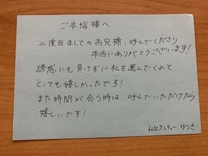 ご本指様へ
二度目ましてのお兄様、呼んでくださり
本当にありがとうございます!
誘惑にも負けずに私を選んでくれて
とっても嬉しかったです!
また時間が合う時は、呼んでいただけたら
嬉しいです!
ゆうき